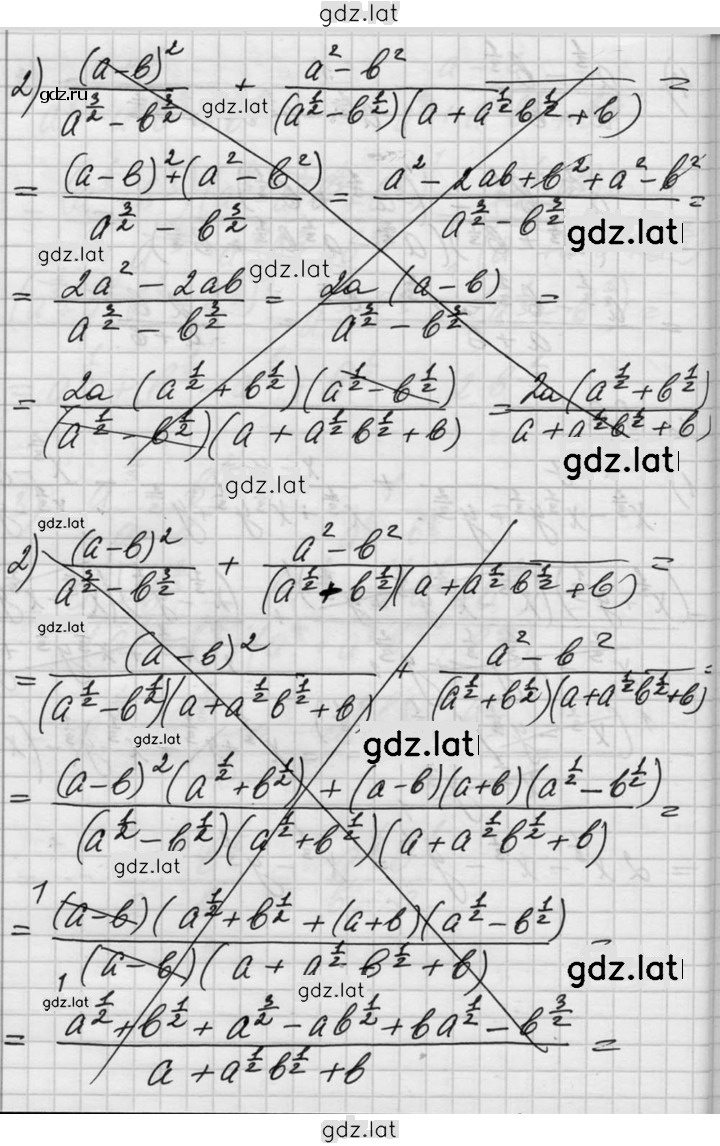 gdz.lat
2) (a-b)²/(a^(3/2) - b^(3/2)) + (a² - b²)/((a^(1/2) - b^(1/2))(a + a^(1/2)b^(1/2) + b)) =
gdz.ru
gdz.lat
= ((a-b)² + (a² - b²))/(a^(3/2) - b^(3/2)) = (a² - 2ab + b² + a² - b²)/(a^(3/2) - b^(3/2)) =
gdz.lat
gdz.lat
gdz.lat
= (2a² - 2ab)/(a^(3/2) - b^(3/2)) = 2a(a-b)/(a^(3/2) - b^(3/2)) =
= 2a(a^(1/2) + b^(1/2))(a^(1/2) - b^(1/2))/((a^(1/2) - b^(1/2))(a + a^(1/2)b^(1/2) + b)) = 2a(a^(1/2) + b^(1/2))/(a + a^(1/2)b^(1/2) + b)
gdz.lat
gdz.lat
gdz.lat
2) (a-b)²/(a^(3/2) - b^(3/2)) + (a² - b²)/((a^(1/2) + b^(1/2))(a + a^(1/2)b^(1/2) + b)) =
gdz.lat
= (a-b)²/((a^(1/2) - b^(1/2))(a + a^(1/2)b^(1/2) + b)) + (a² - b²)/((a^(1/2) + b^(1/2))(a + a^(1/2)b^(1/2) + b)) =
gdz.lat
gdz.lat
= ((a-b)²(a^(1/2) + b^(1/2)) + (a-b)(a+b)(a^(1/2) - b^(1/2)))/((a^(1/2) - b^(1/2))(a^(1/2) + b^(1/2))(a + a^(1/2)b^(1/2) + b)) =
gdz.lat
= 1 (a-b)(a^(1/2) + b^(1/2) + (a+b)(a^(1/2) - b^(1/2))/(1 (a-b)(a + a^(1/2) b^(1/2) + b)) =
gdz.lat
gdz.lat
gdz.lat
= (a^(1/2) + b^(1/2) + a^(3/2) - ab^(1/2) + ba^(1/2) - b^(3/2))/(a + a^(1/2)b^(1/2) + b) =
gdz.lat